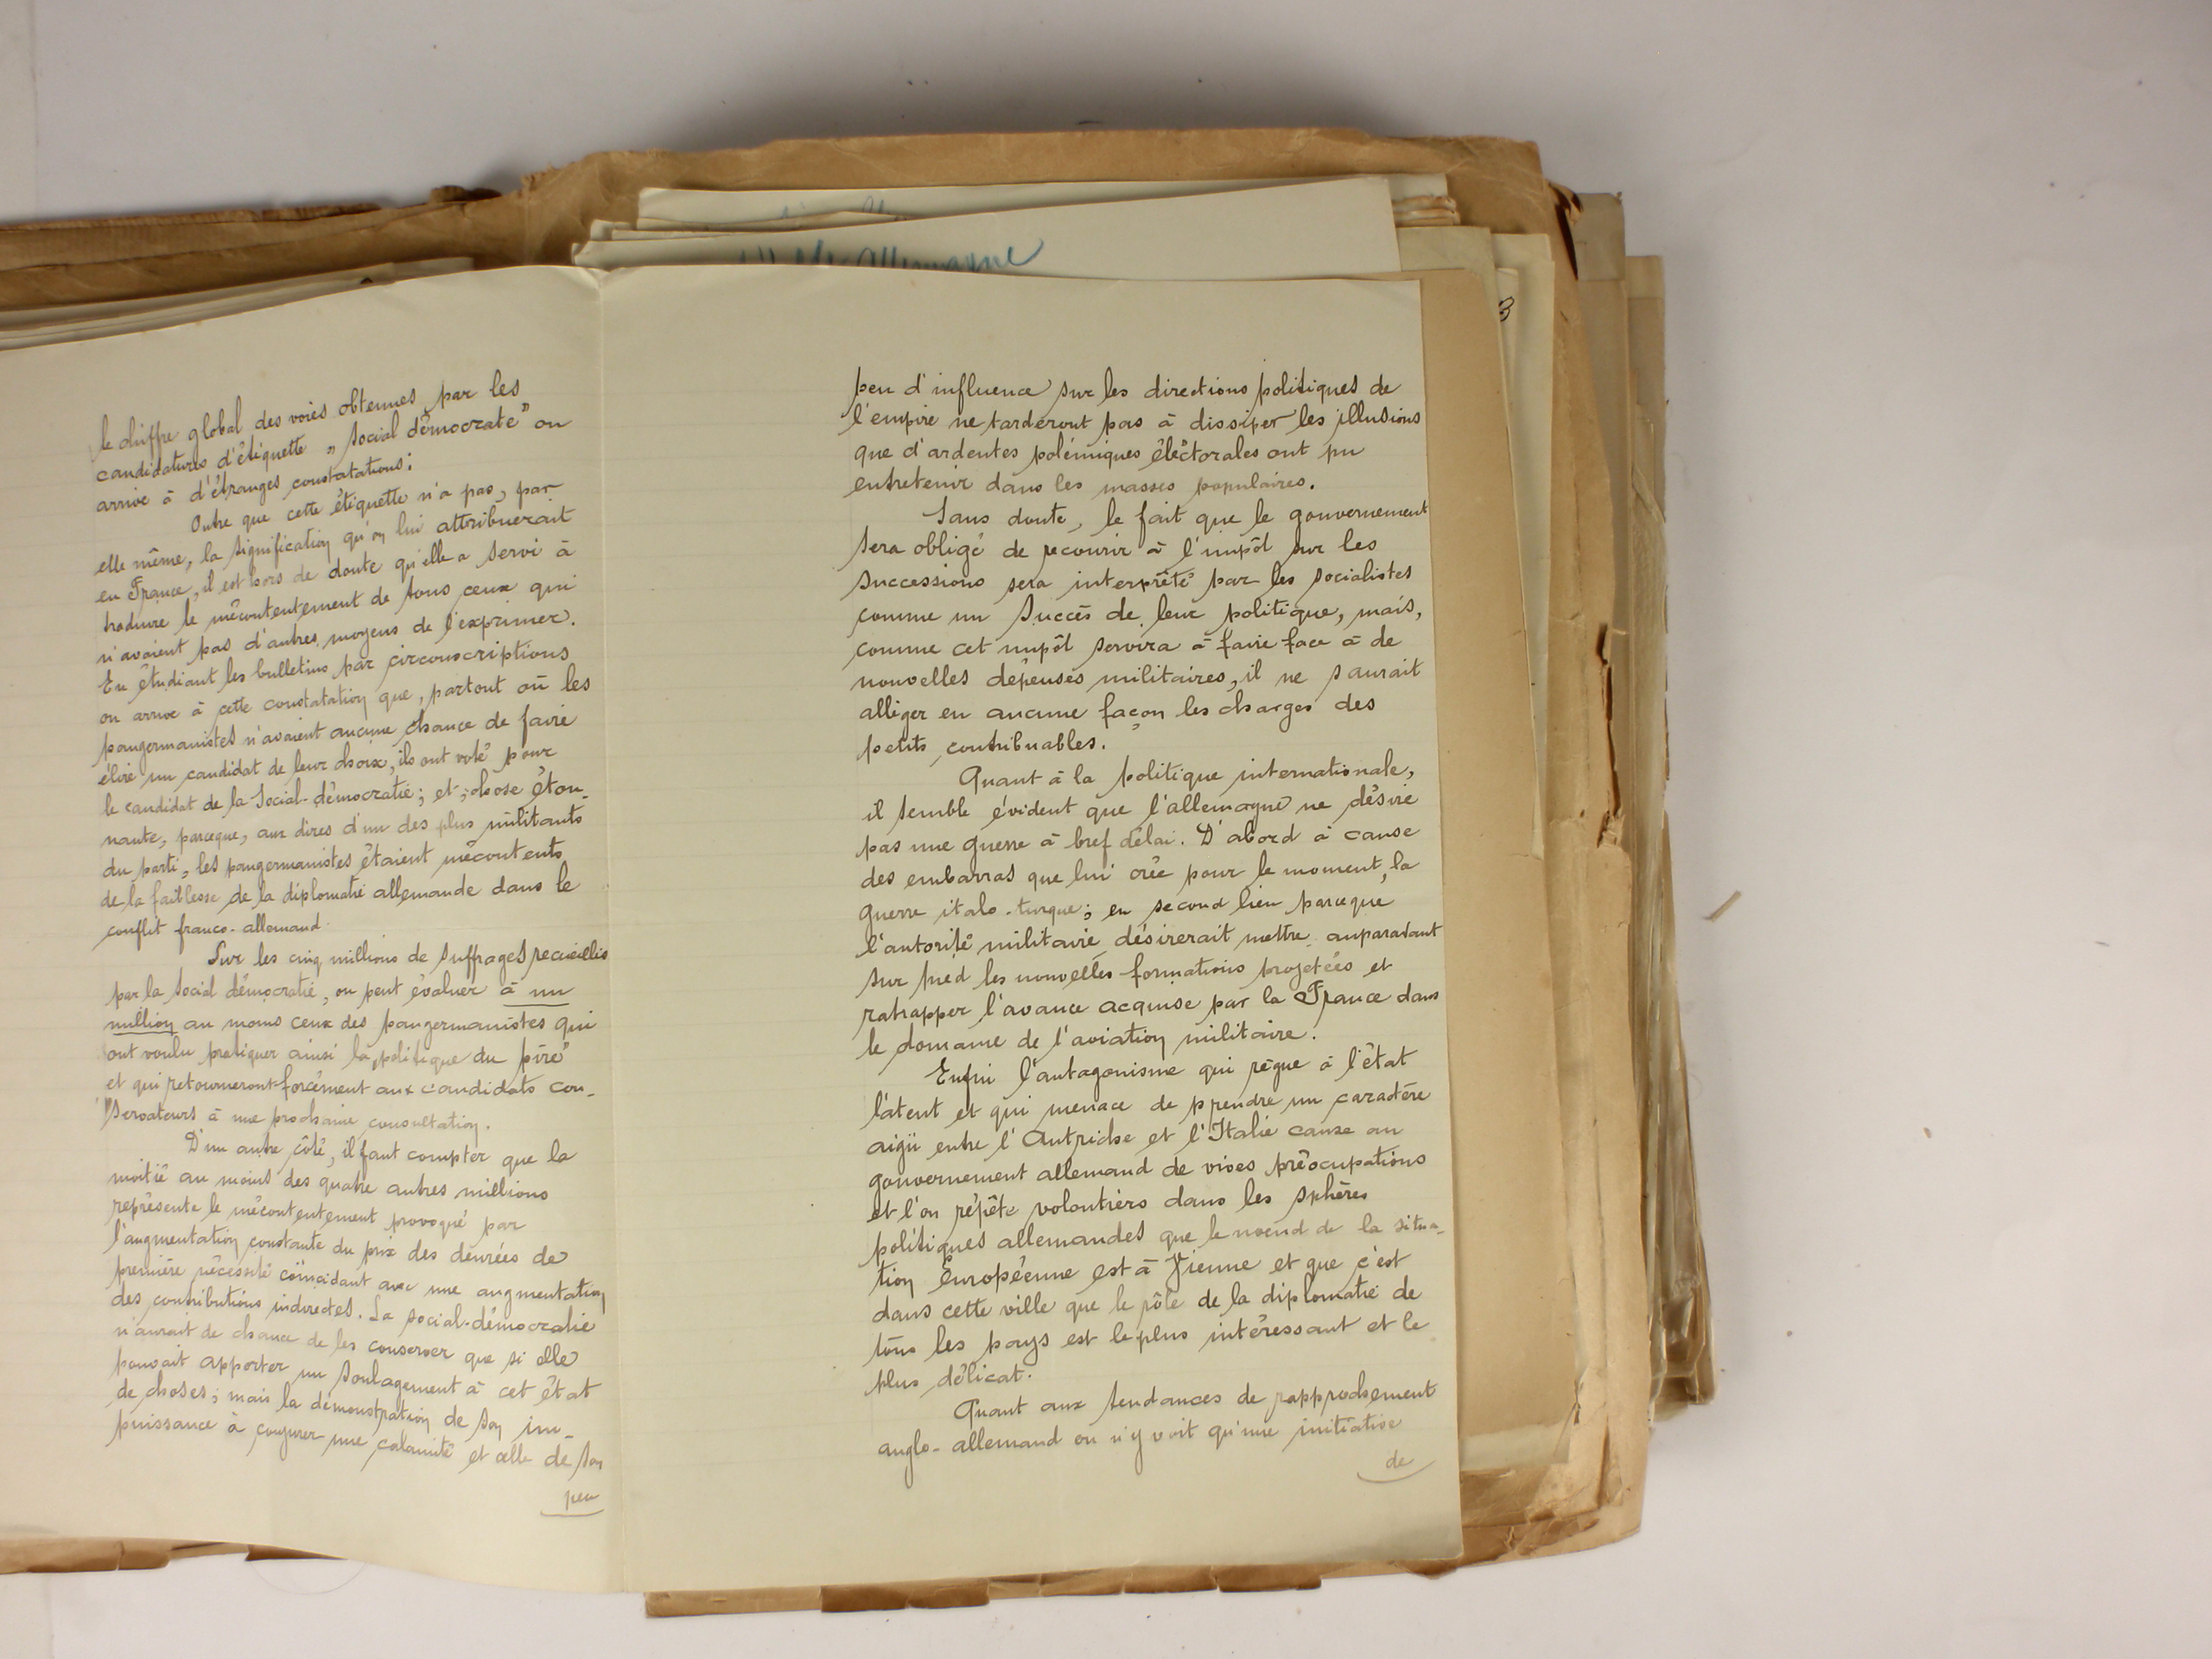 le chiffre global des voies obtenues par les
candidatures d'étiquette „ Social démocrate" on
arrive à d'étranges constatations :
Outre que cette étiquette n'a pas, par
elle même, la signification qu'on lui attribuerait
en France, il est hors de doute qu'elle a servi à
traduire le mécontentement de tous ceux qui
n'avaient pas d'autres moyens de l'exprimer.
En étudiant les bulletins par circonscriptions
on arrive à cette constatation que, partout où les
pangermanistes n'avaient aucune chance de faire
élire un candidat de leur choix, ils ont voté pour
le candidat de la Social-démocratie ; et, chose éton-
nante, parceque, aux dires d'un des plus militants
du parti, les pangermanistes étaient mécontents
de la faiblesse de la diplomatie allemande dans le
conflit franco-allemand.
Sur les cinq millions de suffrages recueillis
par la Social démocratie, on peut évaluer à un
million au moins ceux des pangermanistes qui
ont voulu pratiquer ainsi la „politique du pire"
et qui retourneront forcément aux candidats con-
servateurs à une prochaine consultation.
D'un autre côté, il faut compter que la
moitié au moins des quatre autres millions
représente le mécontentement provoqué par
l'augmentation constante du prix des denrées de
première nécessité coïncidant avec une augmentation
des contributions indirectes. La social-démocratie
n'aurait de chance de les conserver que si elle
pouvait apporter un soulagement à cet état
de choses ; mais la démonstration de son im-
puissance à conjurer une calamité et celle de son
peu
allemagne
peu d'influence sur les directions politiques de
l'empire ne tarderont pas à dissiper les illusions
que d'ardentes polémiques électorales ont pu
entretenir dans les masses populaires.
Sans doute, le fait que le gouvernement
sera obligé de recourir à l'impôt sur les
successions sera interprété par les socialistes
comme un succès de leur politique, mais,
comme cet impôt servira à faire face à de
nouvelles dépenses militaires, il ne saurait
alléger en aucune façon les charges des
petits contribuables.
Quant à la politique internationale,
il semble évident que l'allemagne ne désire
pas une guerre à bref délai. D'abord à cause
des embarras que lui crée pour le moment, la
guerre italo-turque ; en second lieu parceque
l'autorité militaire désirerait mettre auparavant
sur pied les nouvelles formations projetées et
ratrapper l'avance acquise par la France dans
le domaine de l'aviation militaire.
Enfin l'antagonisme qui règne à l'état
latent et qui menace de prendre un caractère
aigü entre l'Autriche et l'Italie cause au
gouvernement allemand de vives préocupations
et l'on répête volontiers dans les sphères
politiques allemandes que le noeud de la situa-
tion Européenne est à Vienne et que c'est
dans cette ville que le rôle de la diplomatie de
tous les pays est le plus intéressant et le
plus délicat.
Quant aux tendances de rapprochement
anglo-allemand on n'y voit qu'une initiative
de